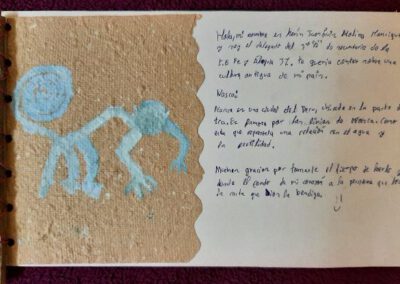 Hola, mi nombre es Kevin
y soy el delegado del 3° "B" de secundaria de la
I.E Fe y Alegría 37, te quería contar sobre una
cultura antigua de mi país.
Nasca:
Nasca es una ciudad del Perú, ubicada en la parte
por las líneas de Nasca. Como
esta que representa una relación con el agua y
la fertilidad.
Muchas gracias por tomarte el tiempo de leerlo y
desde el fondo de mi corazón a la persona que
la carta que Dios la bendiga.